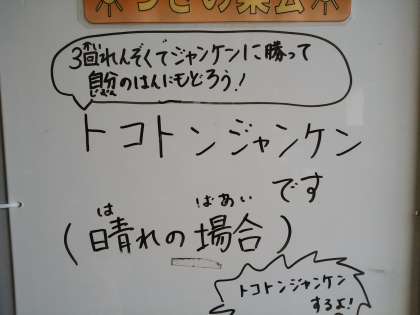 つどの集会
3回れんぞくでジャンケンに勝って
自分のはんにもどろう!
トコトンジャンケン
です
(晴れの場合)
は ばあい
トコトンジャンケン
するよ!